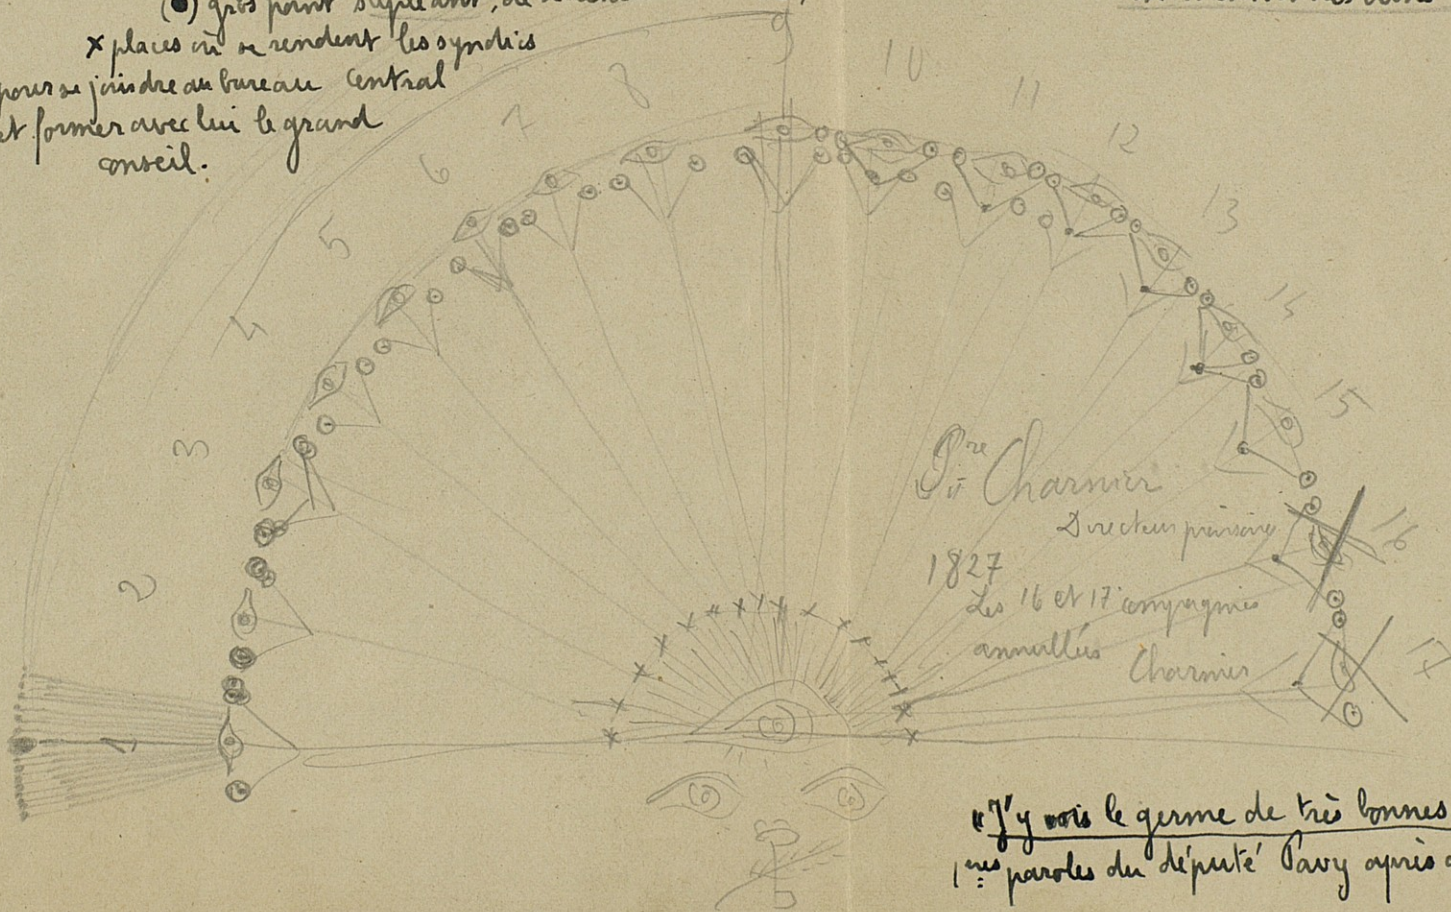 (●) gros point suppléant,
x places où se rendent les syndics
pour se joindre au bureau Central
et former avec lui le grand
conseil.
1
2
3
4
5
6
7
8
9
10
11
12
13
14
15
16
17
Pre Charnier
Directeur
1827
Les 16 et 17 compagnies
annullées Charnier
"J'y vois le germe de très bonnes
1res paroles du député Pavy après